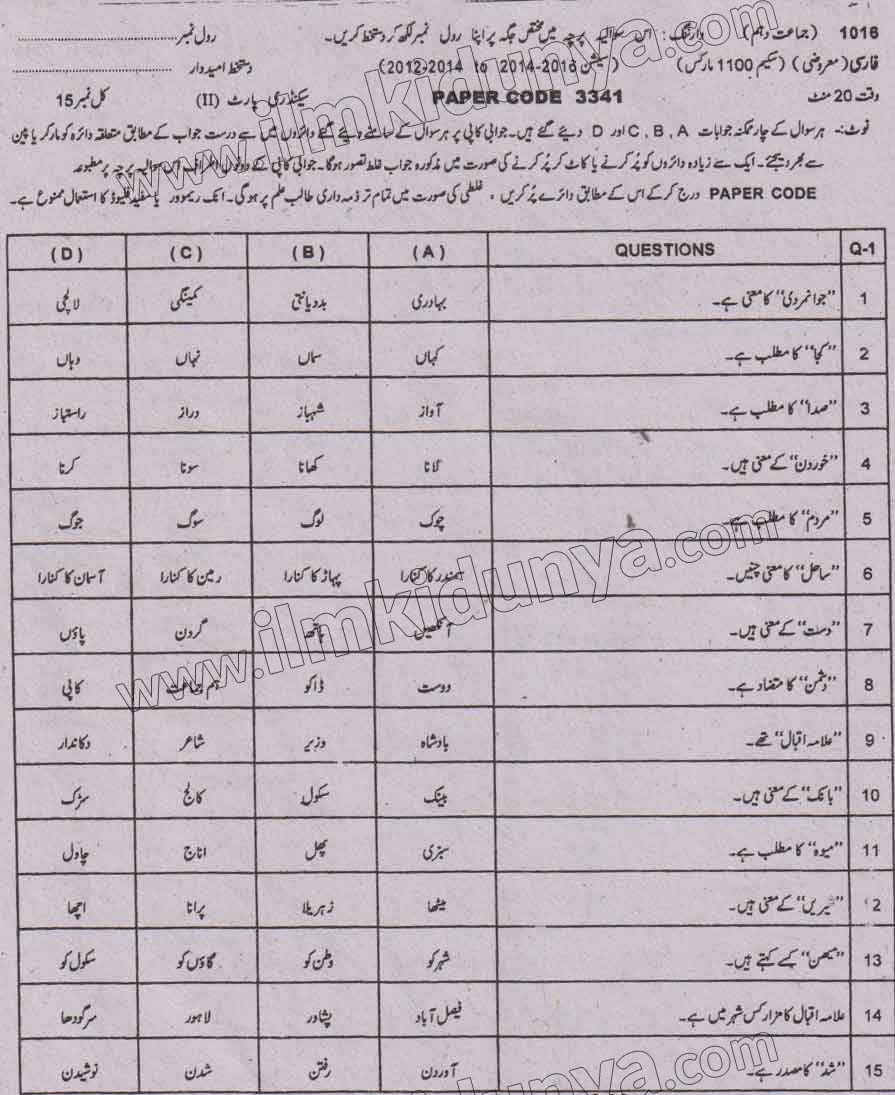 1016 (جماعت دہم) وارننگ: اس سوالیہ پرچہ میں مختص جگہ پر اپنا رول نمبر لکھ کر دستخط کریں۔ رول نمبر
فارسی (معروضی) (سکیم 1100 مارکس) (سیشن 2012-2014 to 2014-2016) دستخط امیدوار
وقت 20 منٹ PAPER CODE 3341 سیکنڈری پارٹ (II) کل نمبر 15
نوٹ:- ہر سوال کے چار ممکنہ جوابات A ,B ,C اور D دیئے گئے ہیں۔ جوابی کاپی پر ہر سوال کے سامنے دیئے گئے دائروں میں سے درست جواب کے مطابق متعلقہ دائرہ کو مارکر یا پین
سے بھر دیجئے۔ ایک سے زیادہ دائروں کو پُر کرنے یا کاٹ کر پُر کرنے کی صورت میں مذکورہ جواب غلط تصور ہوگا۔ جوابی کاپی کے دونوں اطراف اس سوالیہ پرچہ پر مطبوعہ
PAPER CODE درج کرکے اس کے مطابق دائرے پُر کریں ، غلطی کی صورت میں تمام تر ذمہ داری طالب علم پر ہوگی۔ انک ریموور یا سفید فلیوڈ کا استعمال ممنوع ہے۔
Q-1 QUESTIONS (A) (B) (C) (D)
1 ”جوانمردی“ کا معنی ہے۔ بہادری بددیانتی کمینگی لالچی
2 ”کجا“ کا مطلب ہے۔ کہاں سماں نہاں وہاں
3 ”صدا“ کا مطلب ہے۔ آواز شہباز دراز راستباز
4 ”خوردن“ کے معنی ہیں۔ لانا کھانا سونا کرنا
5 ”مردم“ کا مطلب ہے۔ چوک لوگ سوگ جوگ
6 ”ساحل“ کا معنی چنیں۔ سمندر کا کنارا پہاڑ کا کنارا زمین کا کنارا آسمان کا کنارا
7 ”دست“ کے معنی ہیں۔ آنکھیں ہاتھ گردن پاؤں
8 ”دشمن“ کا متضاد ہے۔ دوست ڈاکو ہم جماعت کاپی
9 ”علامہ اقبال“ تھے۔ بادشاہ وزیر شاعر دکاندار
10 ”بانک“ کے معنی ہیں۔ بینک سکول کالج سڑک
11 ”میوہ“ کا مطلب ہے۔ سبزی پھل اناج چاول
2 ”شیریں“ کے معنی ہیں۔ میٹھا زہریلا پرانا اچھا
13 ”میھن“ کسے کہتے ہیں۔ شہر کو وطن کو گاؤں کو سکول کو
14 علامہ اقبال کا مزار کس شہر میں ہے۔ فیصل آباد پشاور لاہور سرگودھا
15 ”شد“ کا مصدر ہے۔ آوردن رفتن شدن نوشیدن
www.ilmkidunya.com
www.ilmkidunya.com